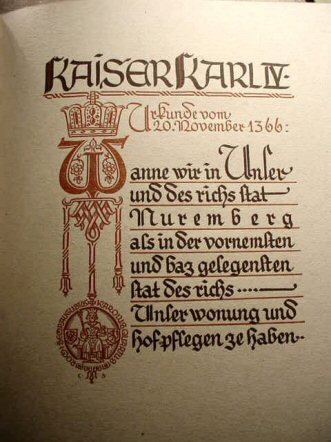 KAISER KARL IV.
Urkunde vom
20. November 1366:
Wanne wir in Unser
und des richs stat
Nuremberg
als in der vornemsten
und baz gelegensten
stat des richs .....
Unser wonung und
hof pflegen ze haben..